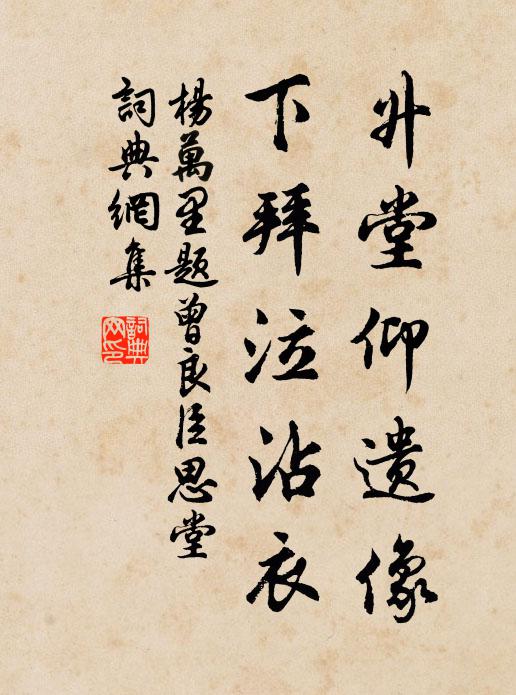 升堂仰遗像
下拜泣沾衣
楊萬里题曾良臣思堂
詞典網集
詞典
网印